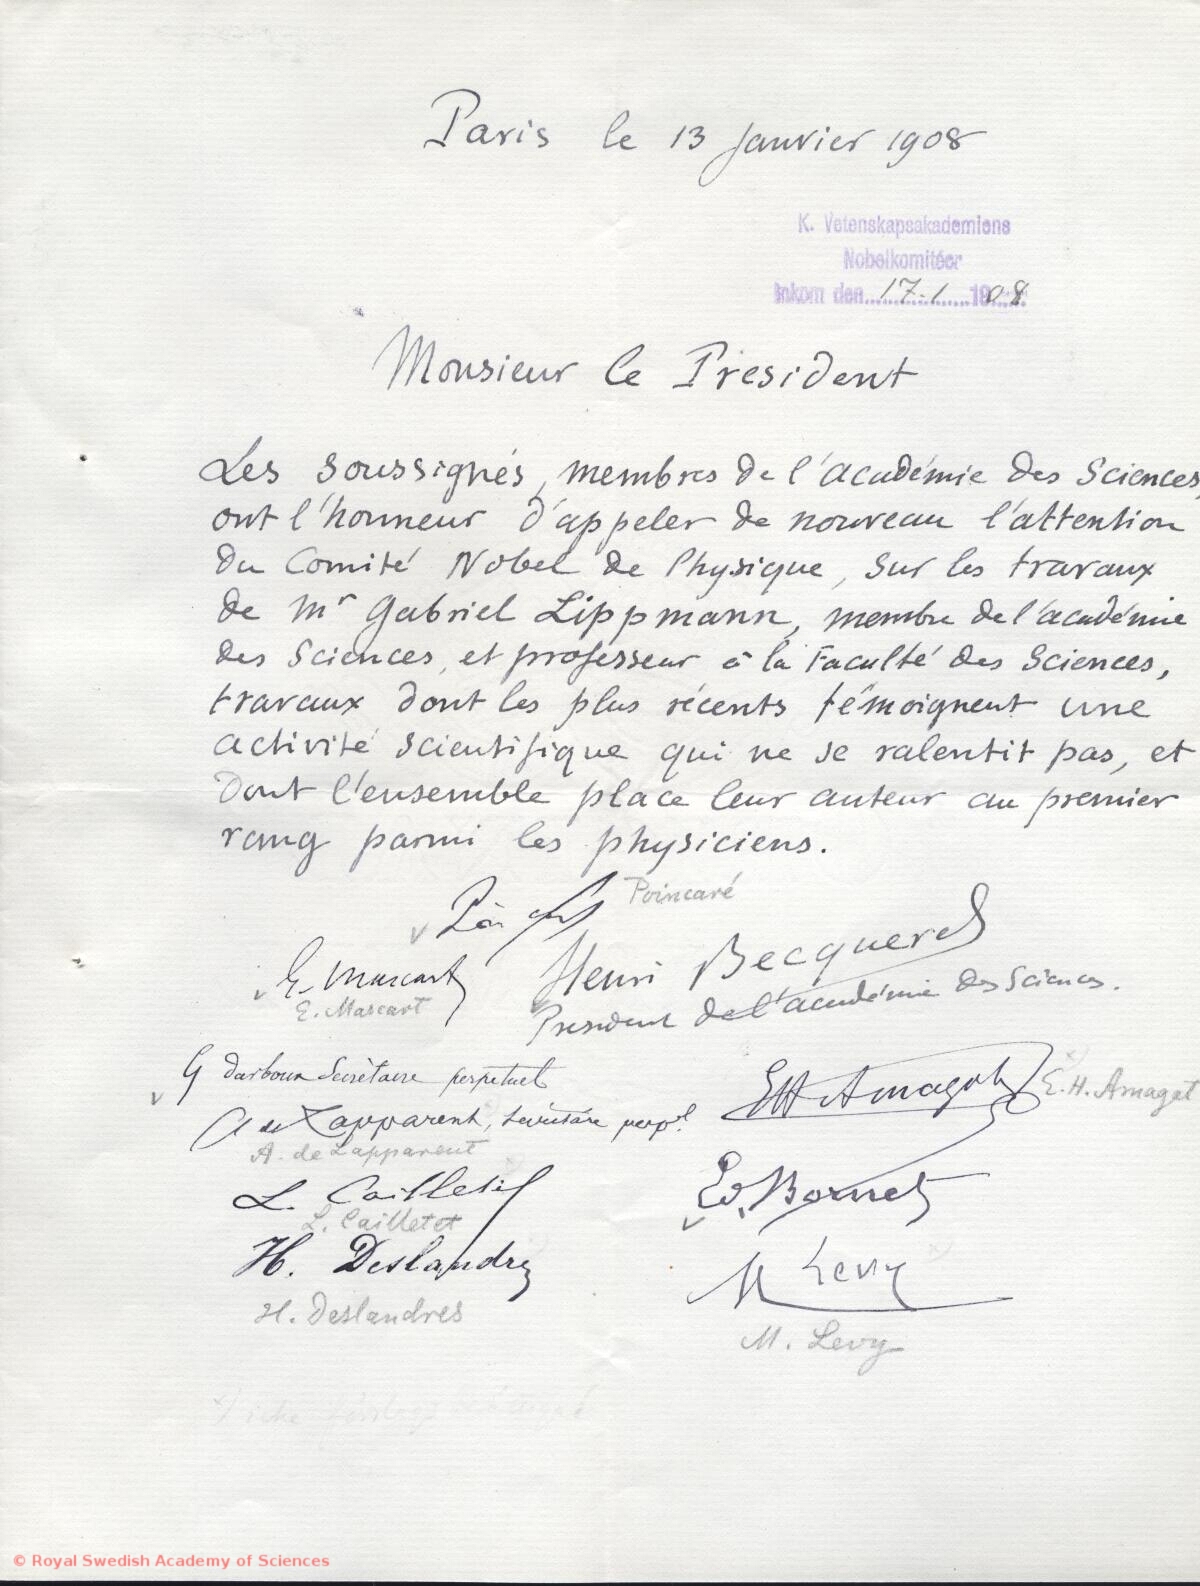 Paris le 13 Janvier 1908
K. Vetenskapsakademiens
Nobelkomitéer
Inkom den 17.1 1908
Monsieur le President
Les soussignés, membres de l'académie des Sciences,
ont l'honneur d'appeler de nouveau l'attention
du Comité Nobel de Physique, sur les travaux
de Mr Gabriel Lippmann, membre de l'académie
des Sciences, et professeur à la Faculté des Sciences,
travaux dont les plus récents témoignent une
activité scientifique qui ne se ralentit pas, et
dont l'ensemble place leur auteur au premier
rang parmi les physiciens.
Poincaré
Poincaré
E. Mascart
E. Mascart
Henri Becquerel
President de l'académie des Sciences.
G Darboux Secrétaire perpetuel
A de Lapparent, secrétaire perp.l
A. de Lapparent
EH Amagat
E.H. Amagat
L. Cailletet
L. Cailletet
Ed. Bornet
H. Deslandres
H. Deslandres
M Levy
M. Levy
© Royal Swedish Academy of Sciences